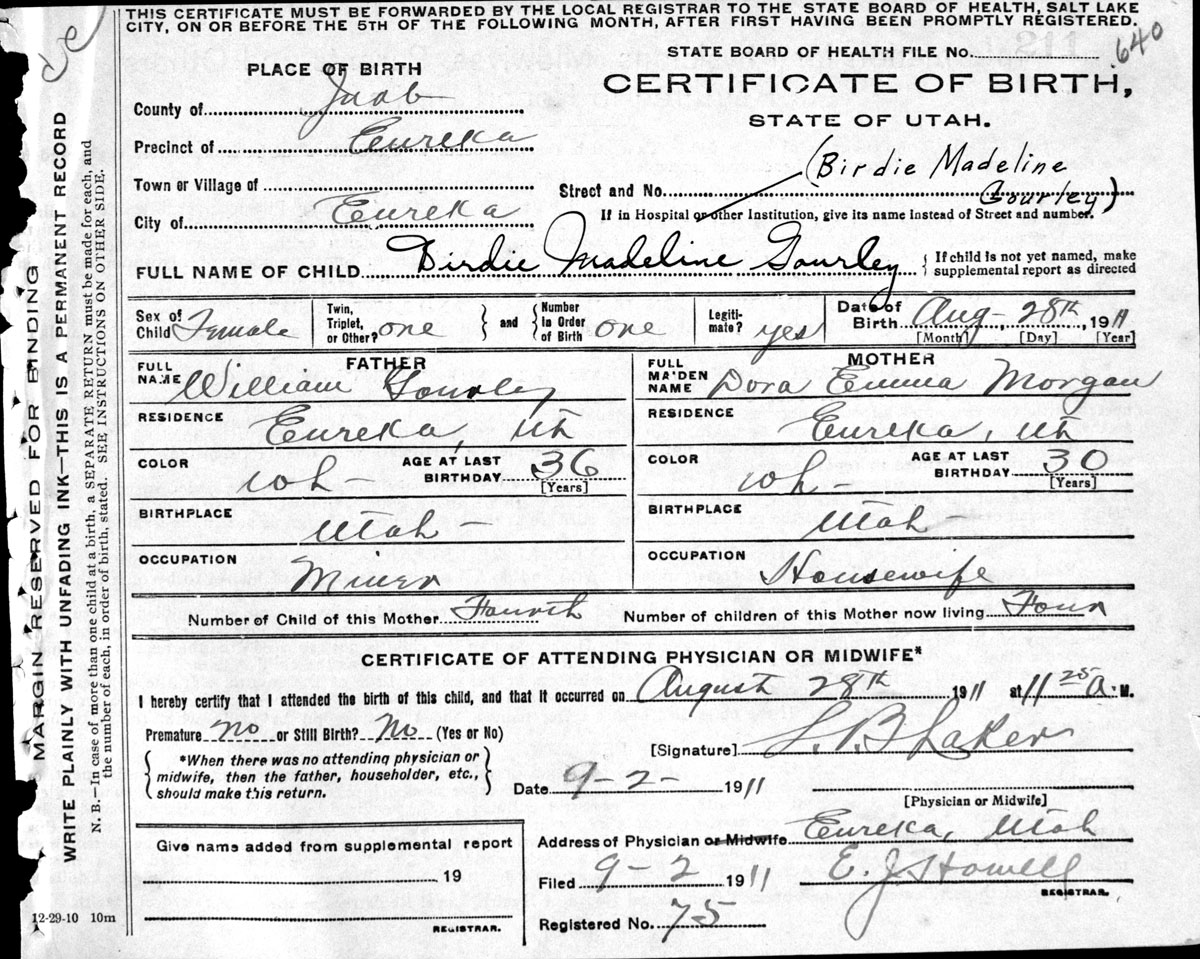 THIS CERTIFICATE MUST BE FORWARDED BY THE LOCAL REGISTRAR TO THE STATE BOARD OF HEALTH, SALT LAKE
CITY, ON OR BEFORE THE 5TH OF THE FOLLOWING MONTH, AFTER FIRST HAVING BEEN PROMPTLY REGISTERED.
STATE BOARD OF HEALTH FILE No. 640
PLACE OF BIRTH
CERTIFICATE OF BIRTH,
STATE OF UTAH.
County of Juab
Precinct of Eureka
Town or Village of
City of Eureka
(Birdie Madeline
Street and No. Gourley)
If in Hospital or other Institution, give its name instead of Street and number.
FULL NAME OF CHILD Birdie Madeline Gourley { If child is not yet named, make
supplemental report as directed
Sex of Child Female
Twin, Triplet, or Other? one
and
Number in Order of Birth one
Legitimate? yes
Date of Birth Aug - 28th, 1911
[Month] [Day] [Year]
FATHER
FULL NAME William Gourley
MOTHER
FULL MAIDEN NAME Dora Emma Morgan
RESIDENCE Eureka, Ut
RESIDENCE Eureka, Ut
COLOR wh - AGE AT LAST BIRTHDAY 36 [Years]
COLOR wh - AGE AT LAST BIRTHDAY 30 [Years]
BIRTHPLACE Utah -
BIRTHPLACE Utah -
OCCUPATION Miner
OCCUPATION Housewife
Number of Child of this Mother Fourth Number of children of this Mother now living Four
CERTIFICATE OF ATTENDING PHYSICIAN OR MIDWIFE*
I hereby certify that I attended the birth of this child, and that it occurred on August 28th 1911 at 11 25 A. M.
Premature no or Still Birth? No (Yes or No)
*When there was no attending physician or
midwife, then the father, householder, etc.,
should make this return.
[Signature]
Date 9-2- 1911
[Physician or Midwife]
Address of Physician or Midwife Eureka, Utah
Filed 9-2 1911 E. J. Howell
REGISTRAR.
Registered No. 75
Give name added from supplemental report
19
REGISTRAR.
12-29-10 10m
MARGIN RESERVED FOR BINDING
WRITE PLAINLY WITH UNFADING INK—THIS IS A PERMANENT RECORD
N. B.—In case of more than one child at a birth, a SEPARATE RETURN must be made for each, and
the number of each, in order of birth, stated. SEE INSTRUCTIONS ON OTHER SIDE.